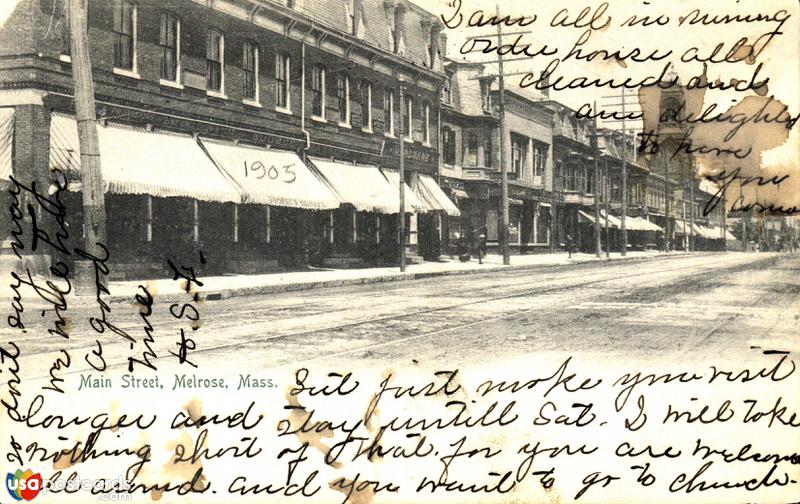 I am all in running
order house all
cleaned and
am delighted
to have
you
come
1905
Main Street, Melrose, Mass.
But just make your visit
longer and stay untill Sat. I will take
nothing short of that. for you are welcome
and. and you want to go to church.
so don't say may
we will have
a good
time
H.S.F.
usapostcards.com